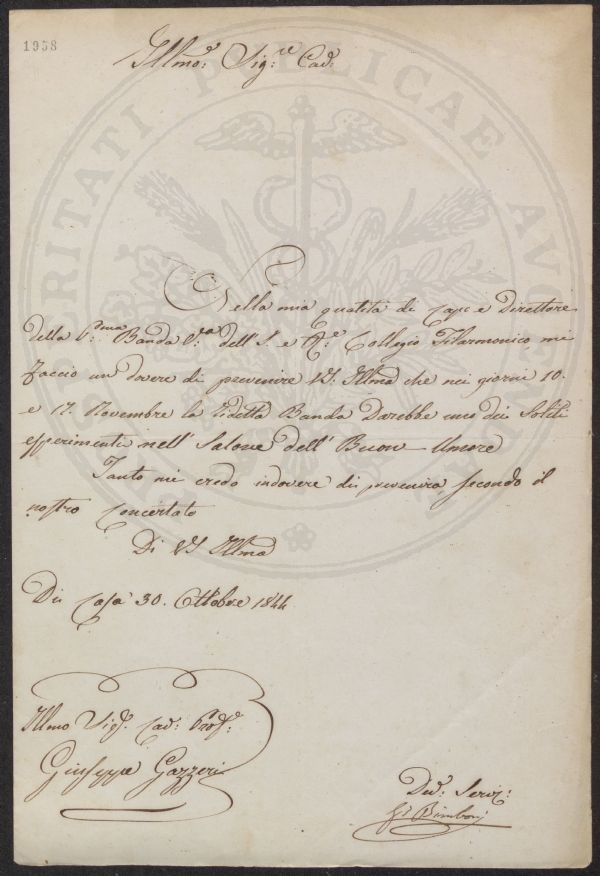 1958
Illmo: Sig:re Cad:
Nella mia qualità di Capo e Direttore
della P:ma Banda dell' I. e R:e Collegio Filarmonico mi
faccio un dovere di prevenire VS. Illma che nei giorni 10.
e 17. Novembre la Banda Darebbe uno dei Soliti
esperimenti nell' Salone dell' Buon-Umore
Tanto mi credo indovere di prevenire secondo il
nostro Concertato
Di VS Illma
Di Casa 30. Ottobre 1844
Illmo Sig:e Cad: Prof:e
Giuseppe Gazzeri
Dev: Serv:
Bimboni